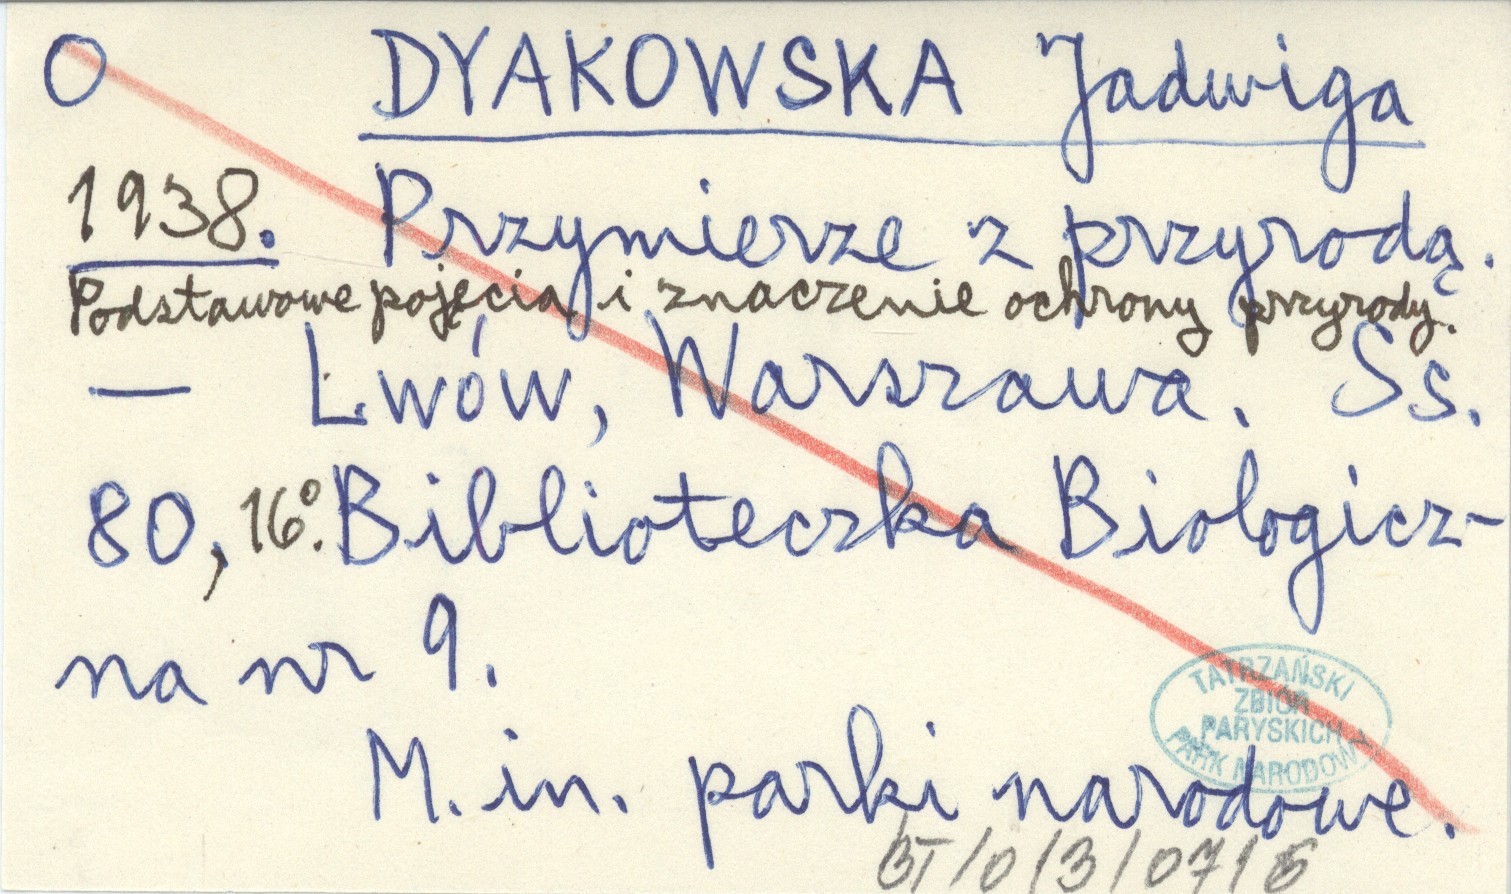 O DYAKOWSKA Jadwiga
1938. Przymierze z przyrodą.
Podstawowe pojęcia i znaczenie ochrony przyrody.
— Lwów, Warszawa. Ss.
80, 16º. Biblioteczka Biologicz-
na nr 9.
TATRZAŃSKI
ZBIÓR
PARYSKICH
PARK NARODOWY
M. in. parki narodowe.
BI/0/3/071